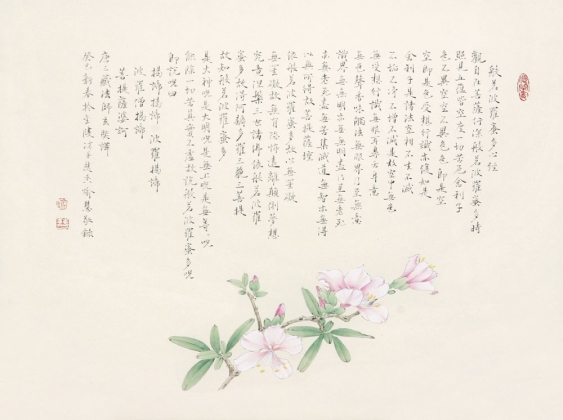 般若波羅蜜多心經
觀自在菩薩行深般若波羅蜜多時
照見五蘊皆空度一切苦厄舍利子
色不異空空不異色色即是空
空即是色受想行識亦復如是
舍利子是諸法空相不生不滅
不垢不淨不增不減是故空中無色
無受想行識無眼耳鼻舌身意
無色聲香味觸法無眼界乃至無意
識界無無明亦無無明盡乃至無老死
亦無老死盡無苦集滅道無智亦無得
以無所得故菩提薩埵
依般若波羅蜜多故心無罣礙
無罣礙故無有恐怖遠離顛倒夢想
究竟涅槃三世諸佛依般若波羅
蜜多故得阿耨多羅三藐三菩提
故知般若波羅蜜多
是大神咒是大明咒是無上咒是無等等咒
能除一切苦真實不虛故說般若波羅蜜多咒
即說咒曰
揭諦揭諦 波羅揭諦
波羅僧揭諦
菩提薩婆訶
唐三藏法師玄奘譯